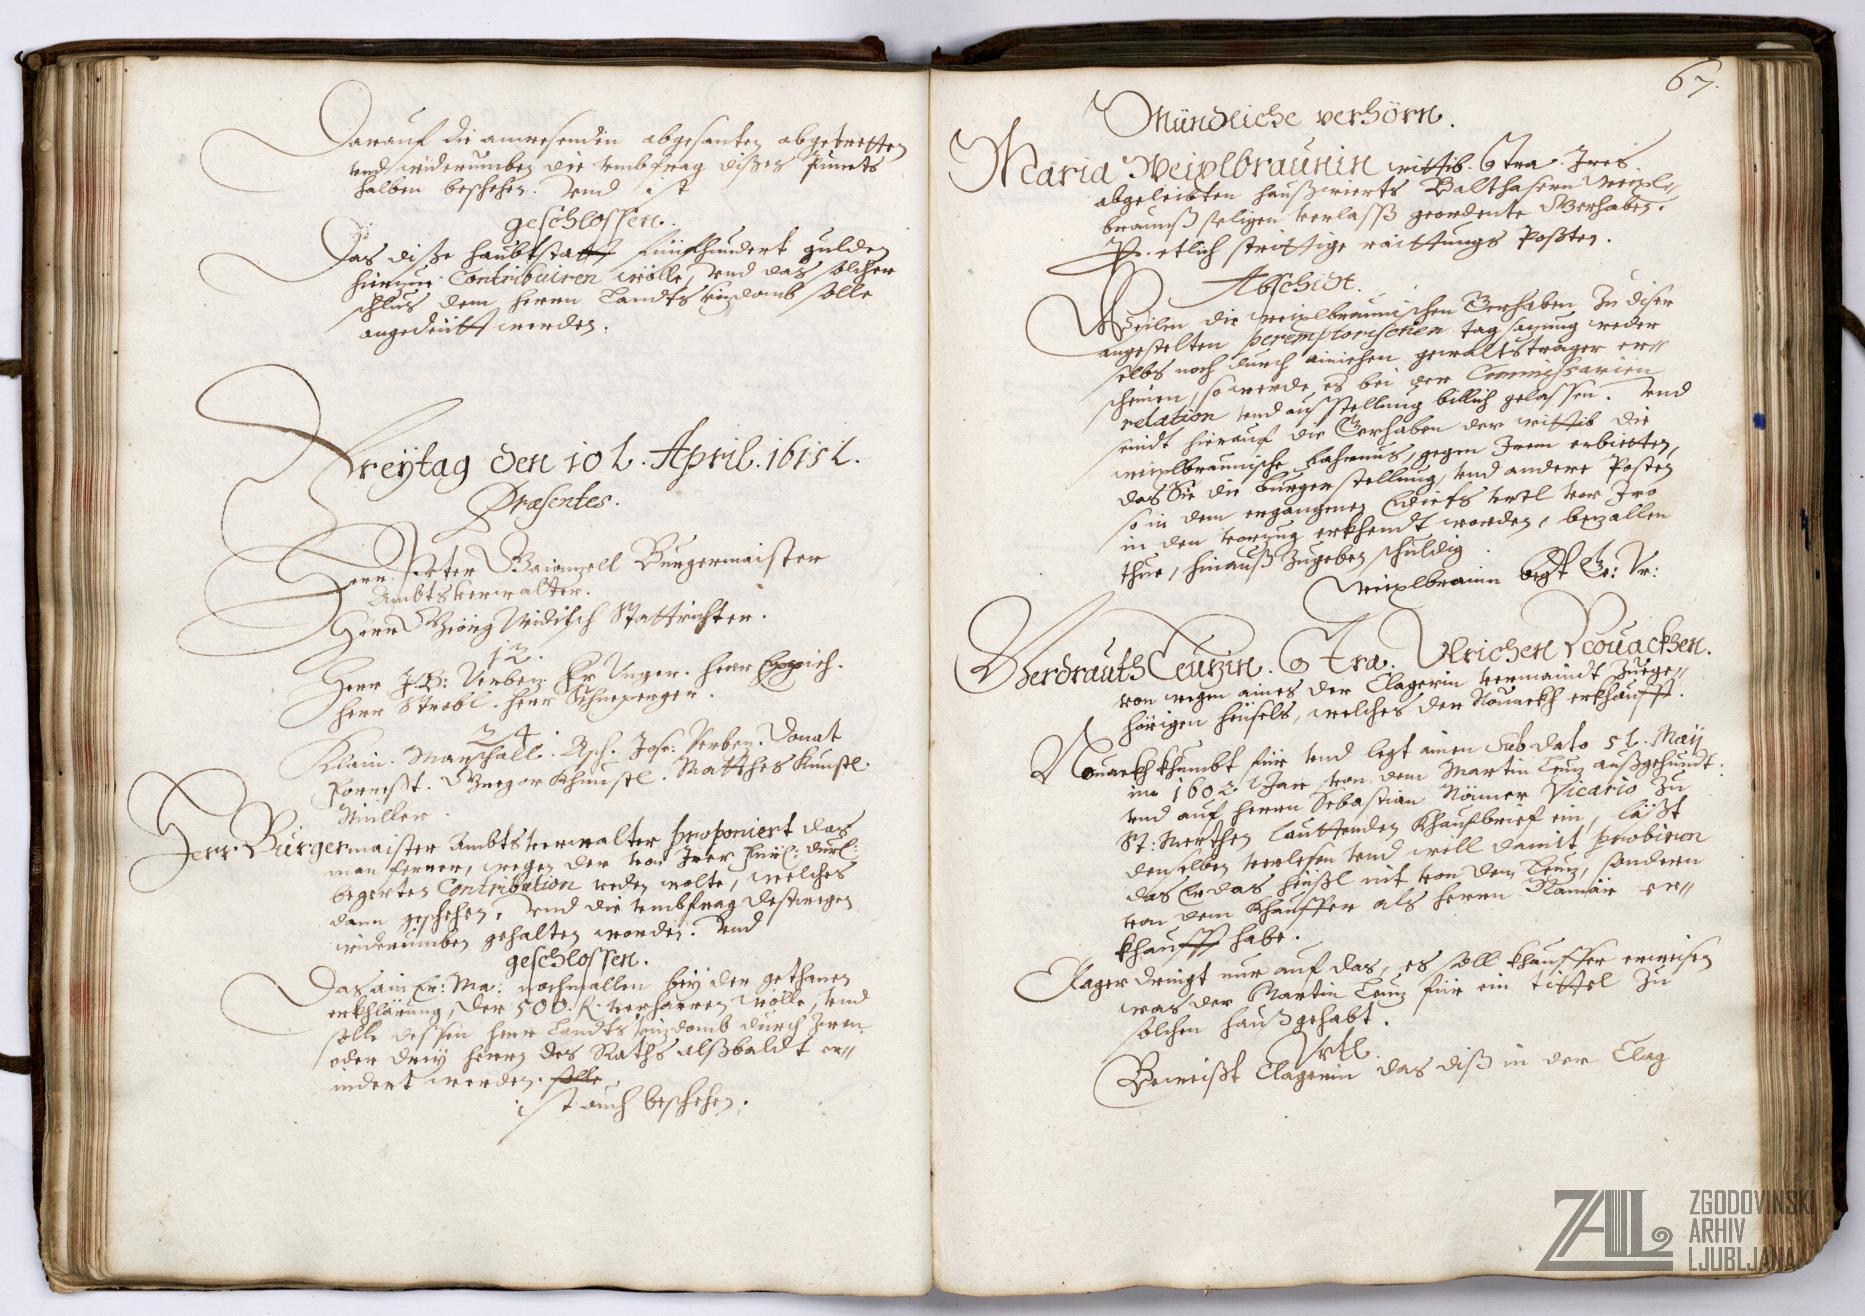 Darauf die anwesenden abgesanten abgetretten
vnd widerumben die vmbfrag dißes Puncts
halben beschehen. Vnd ist
geschlossen.
Das diße haubtstatt fünfhundert gulden
hierein Contribuiren wölle, vnd das solcher
schlus dem herrn Landts vizdomb solle
angedeütt werden.
Freÿtag den 10 t. April. 1615 t.
Præsentes.
Herr Peter Burgermaister
Ambtsverwalter.
Herr Geörg Viditsch Stattrichter.
12.
Herr J. B: Verbez. Hr Vnger. herr Eppich.
herr Strobl. herr Schneperger.
24
Klain. Marschall. Asch. Jos: Verbez. Donat
Gregor Khunstl. Matthes Kunstl.
Müller.
Herr Burgermaister Ambtsverwalter proponiert das
man ferner, wegen der von Irer Fürl: Durl:
begerten Contribution reden wolte, welches
dann geschehen, vnd die vmbfrag destwegen
widerumben gehalten worden. Vnd
geschlossen.
Das ain Er: Ma: nochmallen beÿ der gethanen
erkhlärung, der 500. f. verharren wölle, vnd
solle dessen herr Landts vizdomb durch zwen
oder dreÿ herrn des Raths alßbaldt er//
indert werden. solle
ist auch beschehen.
67.
Mündliche verhörn.
Maria Weixlbraunin wittib. Cΐtra. Ires
abgeleibten haußwierts Balthasern Weixl//
brauns seligen verlass geordente Gerhaben.
P. etlich strittige raittungs Posten.
Abschidt.
Weilen die weixlbraunischen Gerhaben zu diser
angestelten peremptorischen tagsazung weder
selbs noch durch ainichen gewaltstrager er//
scheinen, so werde es bei der Commissarien
relation vnd ausstellung billich gelassen. Vnd
seindt hierauf die Gerhaben der wittib die
weixlbraunische fahrnus, gegen Irem erbietten,
das Sie die burgerstellung, vnd andere Posten
so in dem ergangenen vrtl vor Iro
in den vorzug erkhendt worden, bezallen
thue, hinauß zugeben schuldig.
Weixlbraunin begt
Gerdrauth Leuzin. Ctra. Vlrichen Nouackhen.
von wegen aines der Clagerin vermaindt zuege//
hörigen heüsels, welches der Nouackh erkhaufft.
Nouackh khumbt für vnd legt ainen sub dato 5 t. Maÿ
im 1602 t Jar von dem Martin Leuz außgehundt.
vnd auf herrn Sebastian Vicario zu
St: Merthen lauttenden khaufbrief ein, läßt
denselben verlesen vnd will damit probieren
das Er das heüßl nit von dem Leuz, sonderen
von dem khauffer als herrn er//
khaufft habe.
Clager dringt nur auf das, es soll khauffer erweisen
was der Martin Leuz für ein tittel zu
solchen hauß gehabt.
Vrtl.
Beweißt Clagerin das diß in der Clag
ZAL
ZGODOVINSKI
ARHIV
LJUBLJANA